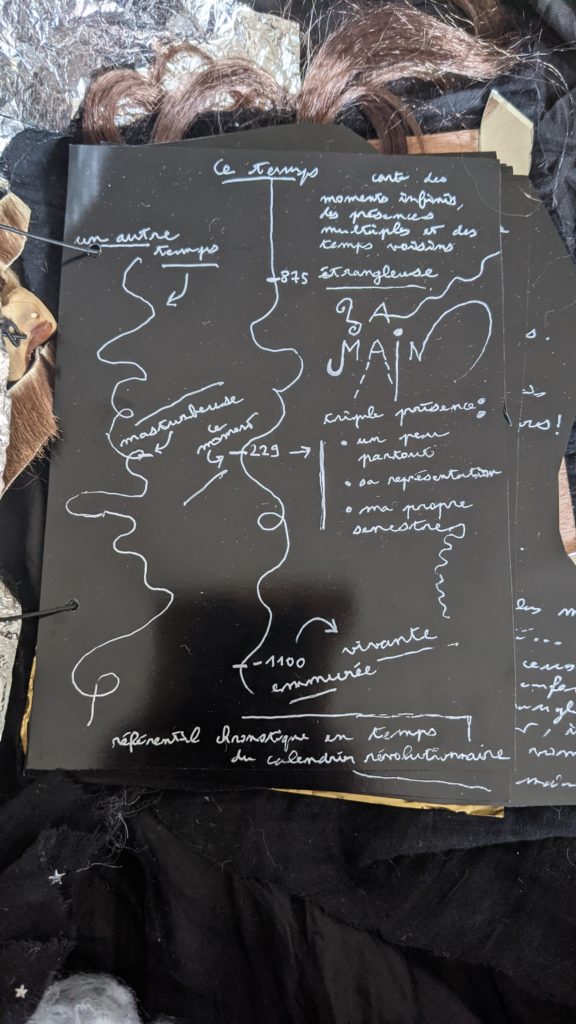 Ce temps
carte des
moments infinis,
des présences
multiples et des
temps voisins
un autre
temps
-875
étrangleuse
LA
MAIN
masturbeuse
ce
moment
229
triple présence:
• un peu
partout
• sa représentation
• ma propre
senestre
-1100
vivante
emmurée
référentiel chronotique en temps
du calendrier révolutionnaire
s.
res!